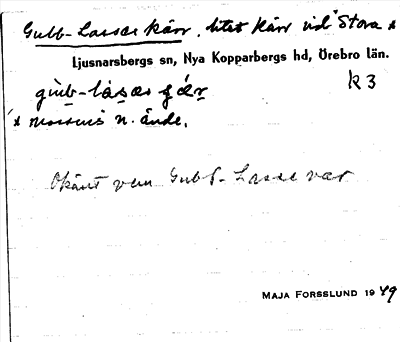 Gubb-Lasses kärr, litet kärr vid "Stora x
Ljusnarsbergs sn, Nya Kopparbergs hd, Örebro län.
gub-lasæs k 3
x mossens n. ände.
Okänt vem Gubb-Lasse var
MAJA FORSSLUND 1949